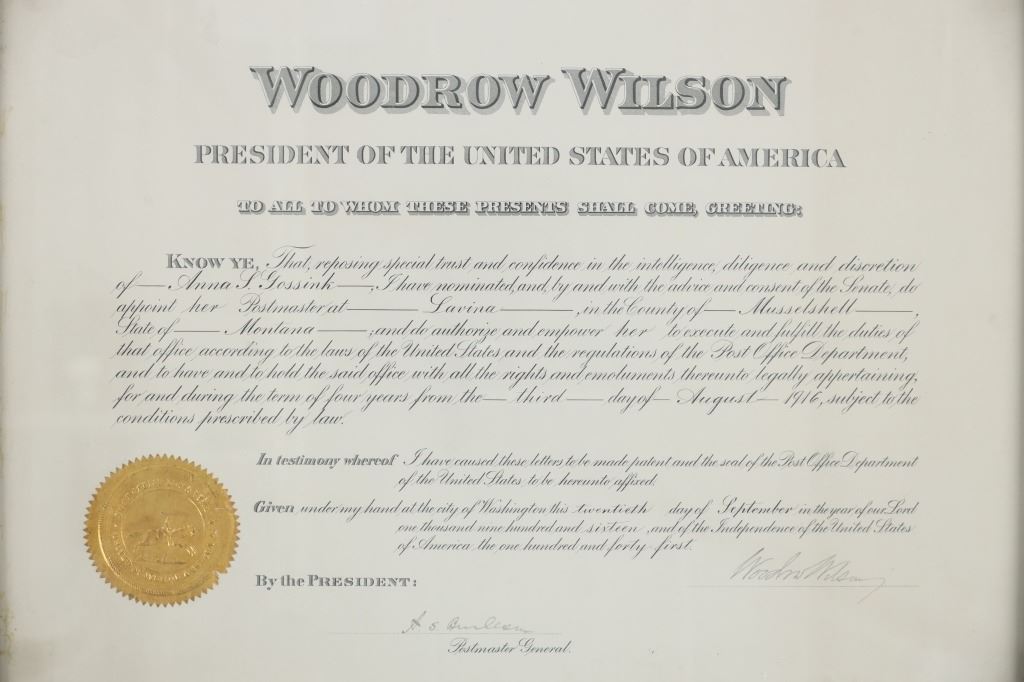 WOODROW WILSON
PRESIDENT OF THE UNITED STATES OF AMERICA
TO ALL TO WHOM THESE PRESENTS SHALL COME, GREETING:
KNOW YE, That, reposing special trust and confidence in the intelligence, diligence and discretion
of — Anna S. Gossink —, I have nominated, and, by and with the advice and consent of the Senate, do
appoint her Postmaster at — Lavina —, in the County of — Musselshell —,
State of — Montana —; and do authorize and empower her to execute and fulfill the duties of
that office according to the laws of the United States and the regulations of the Post Office Department,
and to have and to hold the said office with all the rights and emoluments thereunto legally appertaining,
for and during the term of four years from the — third — day of — August — 1916, subject to the
conditions prescribed by law.
In testimony whereof I have caused these letters to be made patent and the seal of the Post Office Department
of the United States to be hereunto affixed.
Given under my hand at the city of Washington this twentieth day of September in the year of our Lord
one thousand nine hundred and sixteen, and of the Independence of the United States
of America the one hundred and forty-first.
By the PRESIDENT:
Woodrow Wilson
A. S. Burleson
Postmaster General.